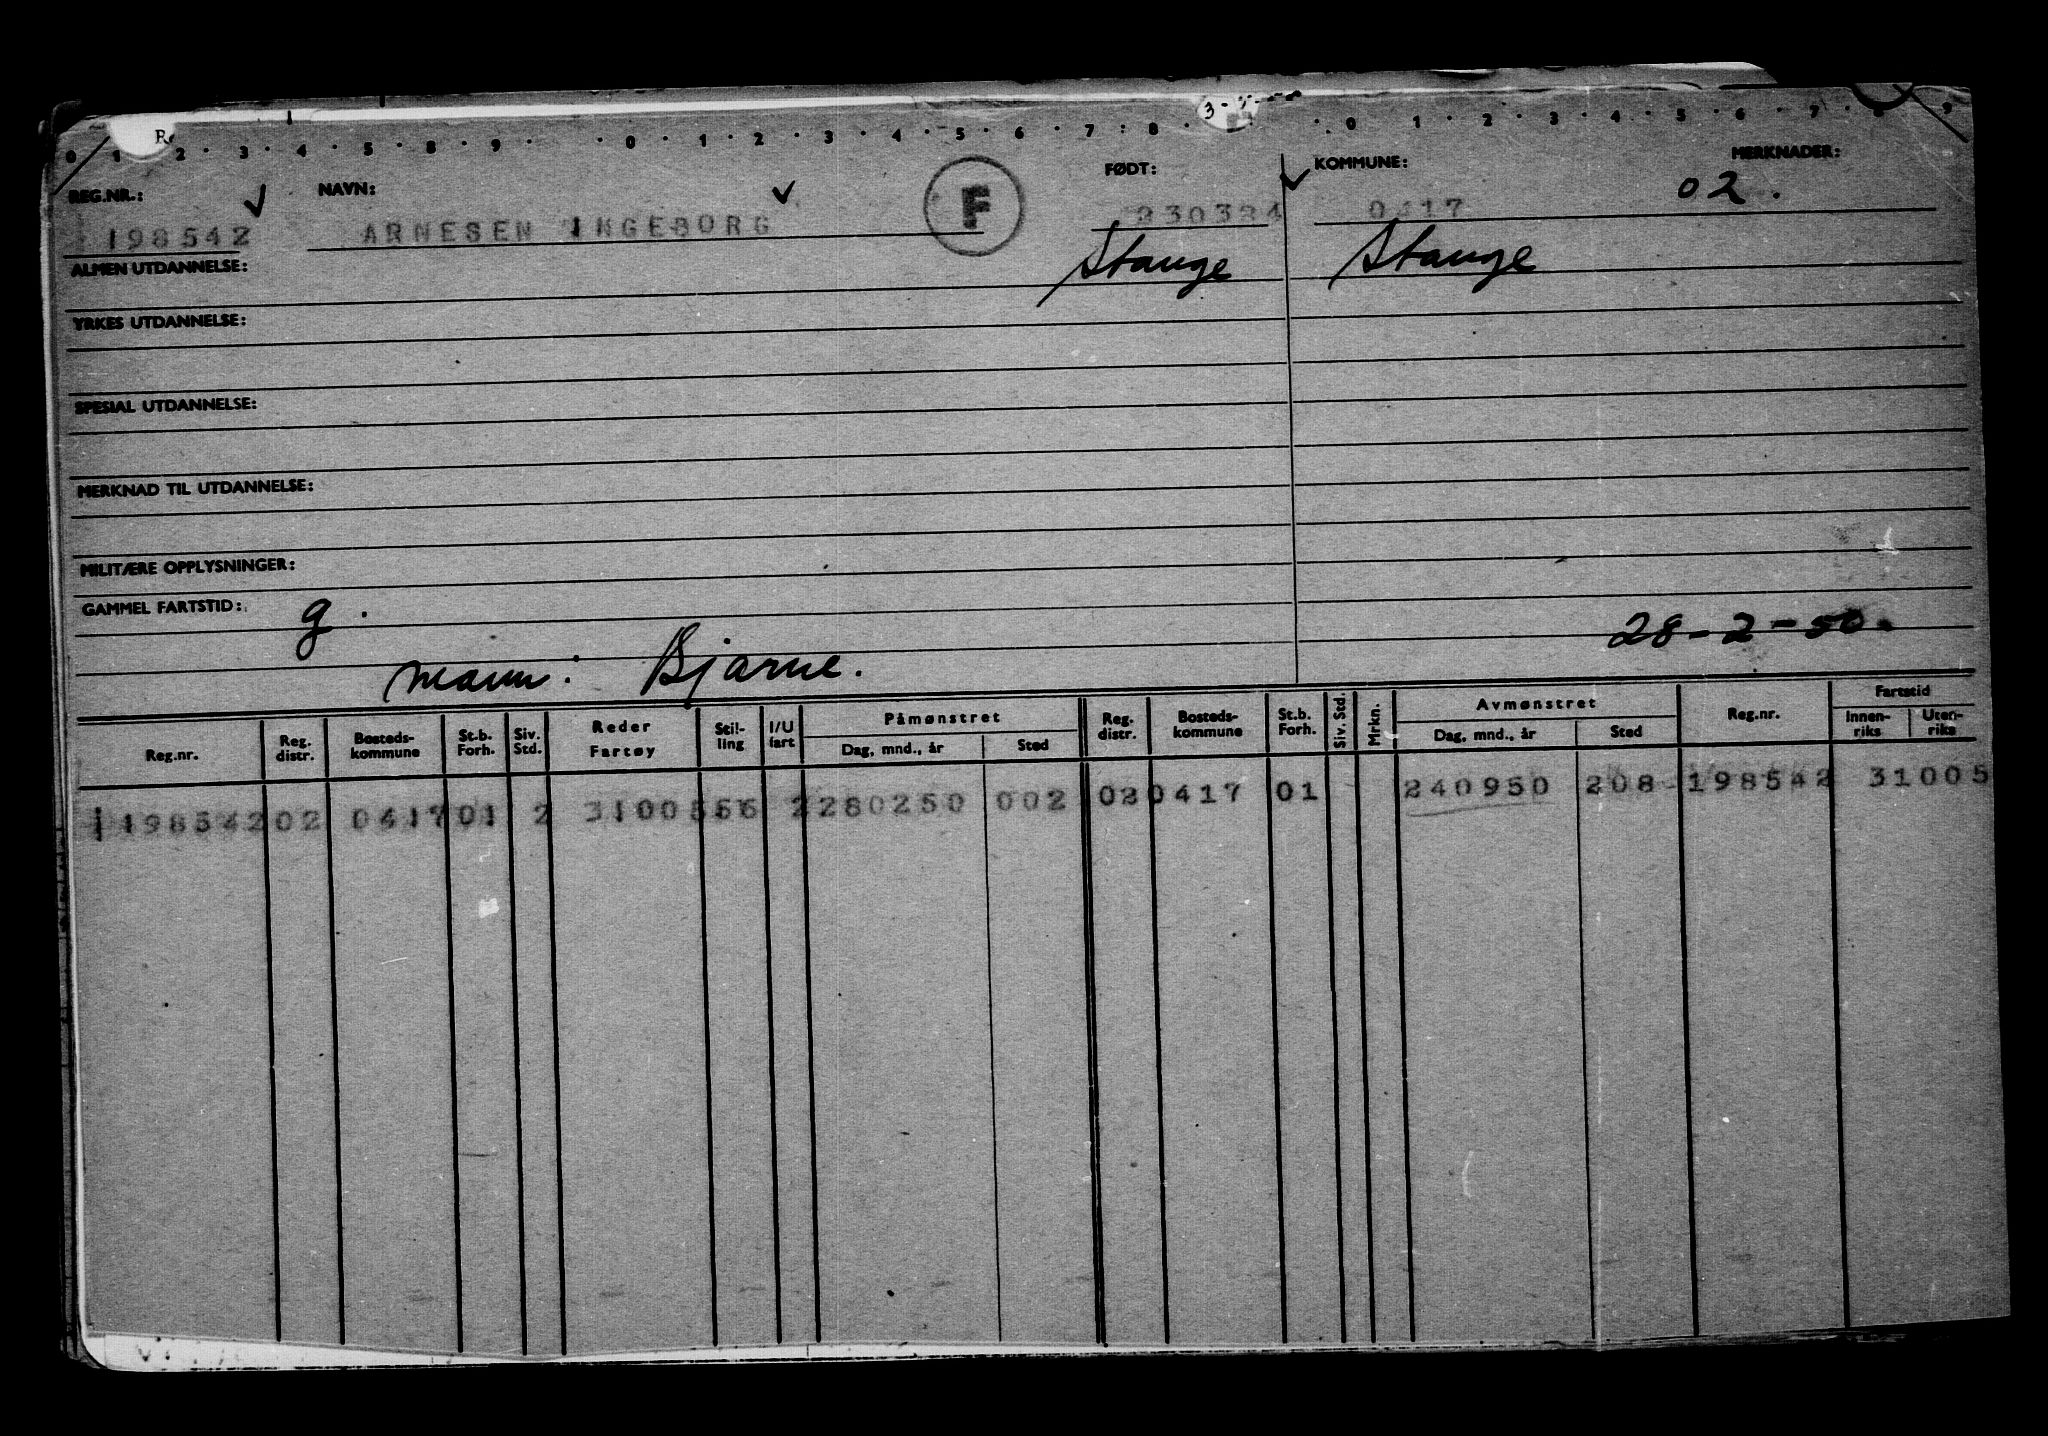 0 1 2 3 4 5 8 9 0 1 2 3 4 5 6 7 8 3 0 1 2 3 4 5 6 7 8 9
REG.NR.: NAVN: F FØDT: KOMMUNE: MERKNADER:
198542 ARNESEN INGEBORG 0417 02.
ALMEN UTDANNELSE: Stange Stange
YRKES UTDANNELSE:
SPESIAL UTDANNELSE:
MERKNAD TIL UTDANNELSE:
MILITÆRE OPPLYSNINGER:
GAMMEL FARTSTID: g. 28-2-50.
mann: Bjarne.
Reg.nr. Reg. distr. Bosteds-kommune St.b. Forh. Siv. Std. Reder Fartøy Stil-ling I/U fart Påmønstret Dag, mnd., år Sted Reg. distr. Bosteds-kommune St.b. Forh. Siv. Std. Mrkn. Avmønstret Dag, mnd., år Sted Reg.nr. Fartstid Innen-riks Uten-riks
198542 02 0417 01 2 31005 56 2 280250 002 02 0417 01 240950 208 198542 31005